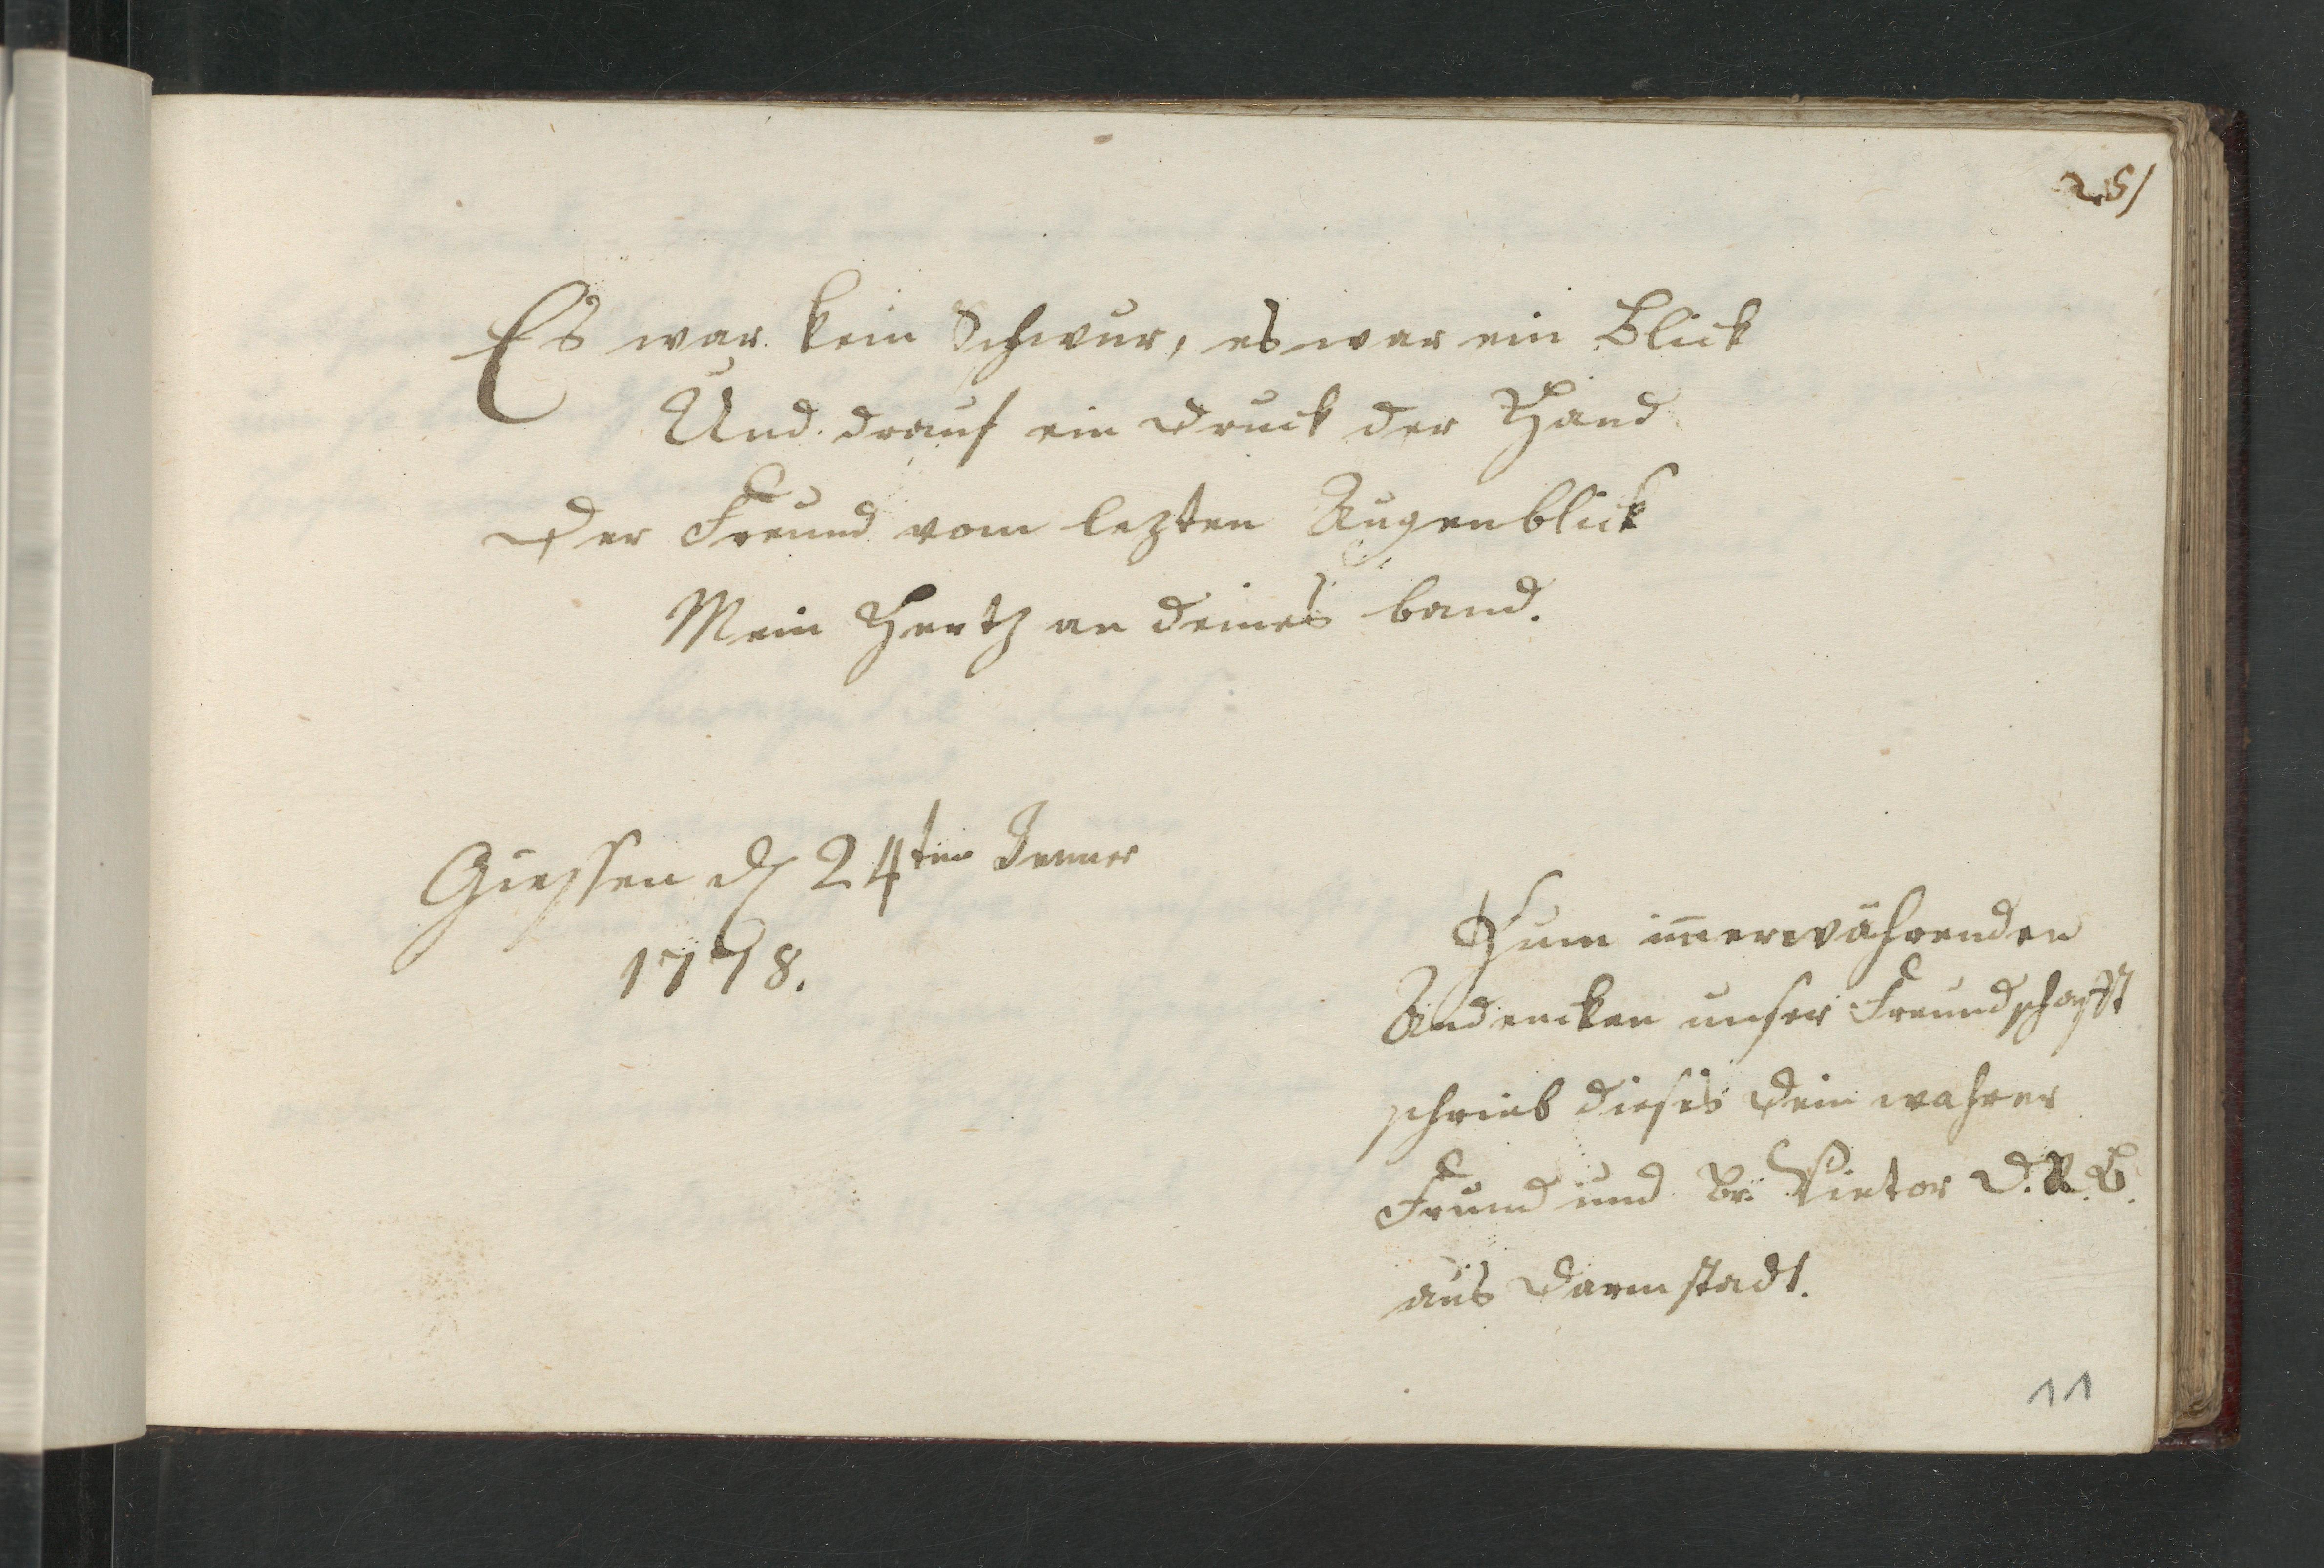 25/
Es war kein Schwur, es war ein Blick
Und drauf ein Druck der Hand
Der Freund vom lezten Augenblick
Mein Hertz an deines band.
Giessen d 24ten Jenner
1778.
Zum im̄erwährenden
Andencken unser Freundschafft
schrieb dieses Dein wahrer
Freund und Br. Vietor D.R.B.
aus Darmstadt.
11